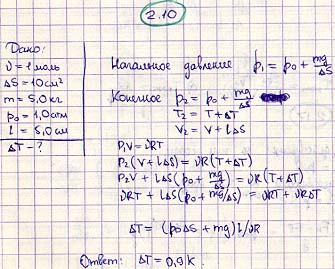 2.10
Дано:
ν = 1 моль
ΔS = 10 см²
m = 5,0 кг
p₀ = 1,0 атм
l = 5,0 см
ΔT - ?
Начальное давление p₁ = p₀ + mg/ΔS
Конечное p₂ = p₀ + mg/ΔS
T₂ = T + ΔT
V₂ = V + lΔS
P₁V = νRT
P₂(V + lΔS) = νR(T + ΔT)
P₂V + lΔS(p₀ + mg/ΔS) = νR(T + ΔT)
νRT + lΔS(p₀ + mg/ΔS) = νRT + νRΔT
ΔT = (p₀ΔS + mg)l/νR
Ответ: ΔT = 0,9 К